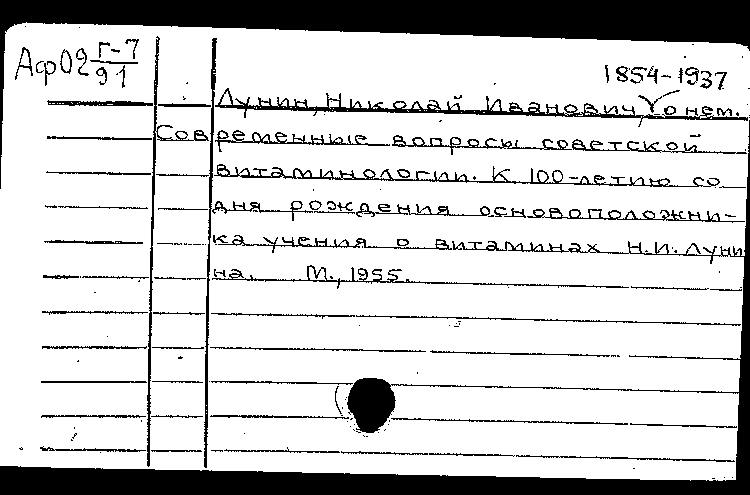 Аф02 Г-7
91
1854-1937
Лунин, Николай Иванович, о нем.
Современные вопросы советской
витаминологии. К 100-летию со
дня рождения основоположни-
ка учения о витаминах Н.И. Луни
на. М., 1955.